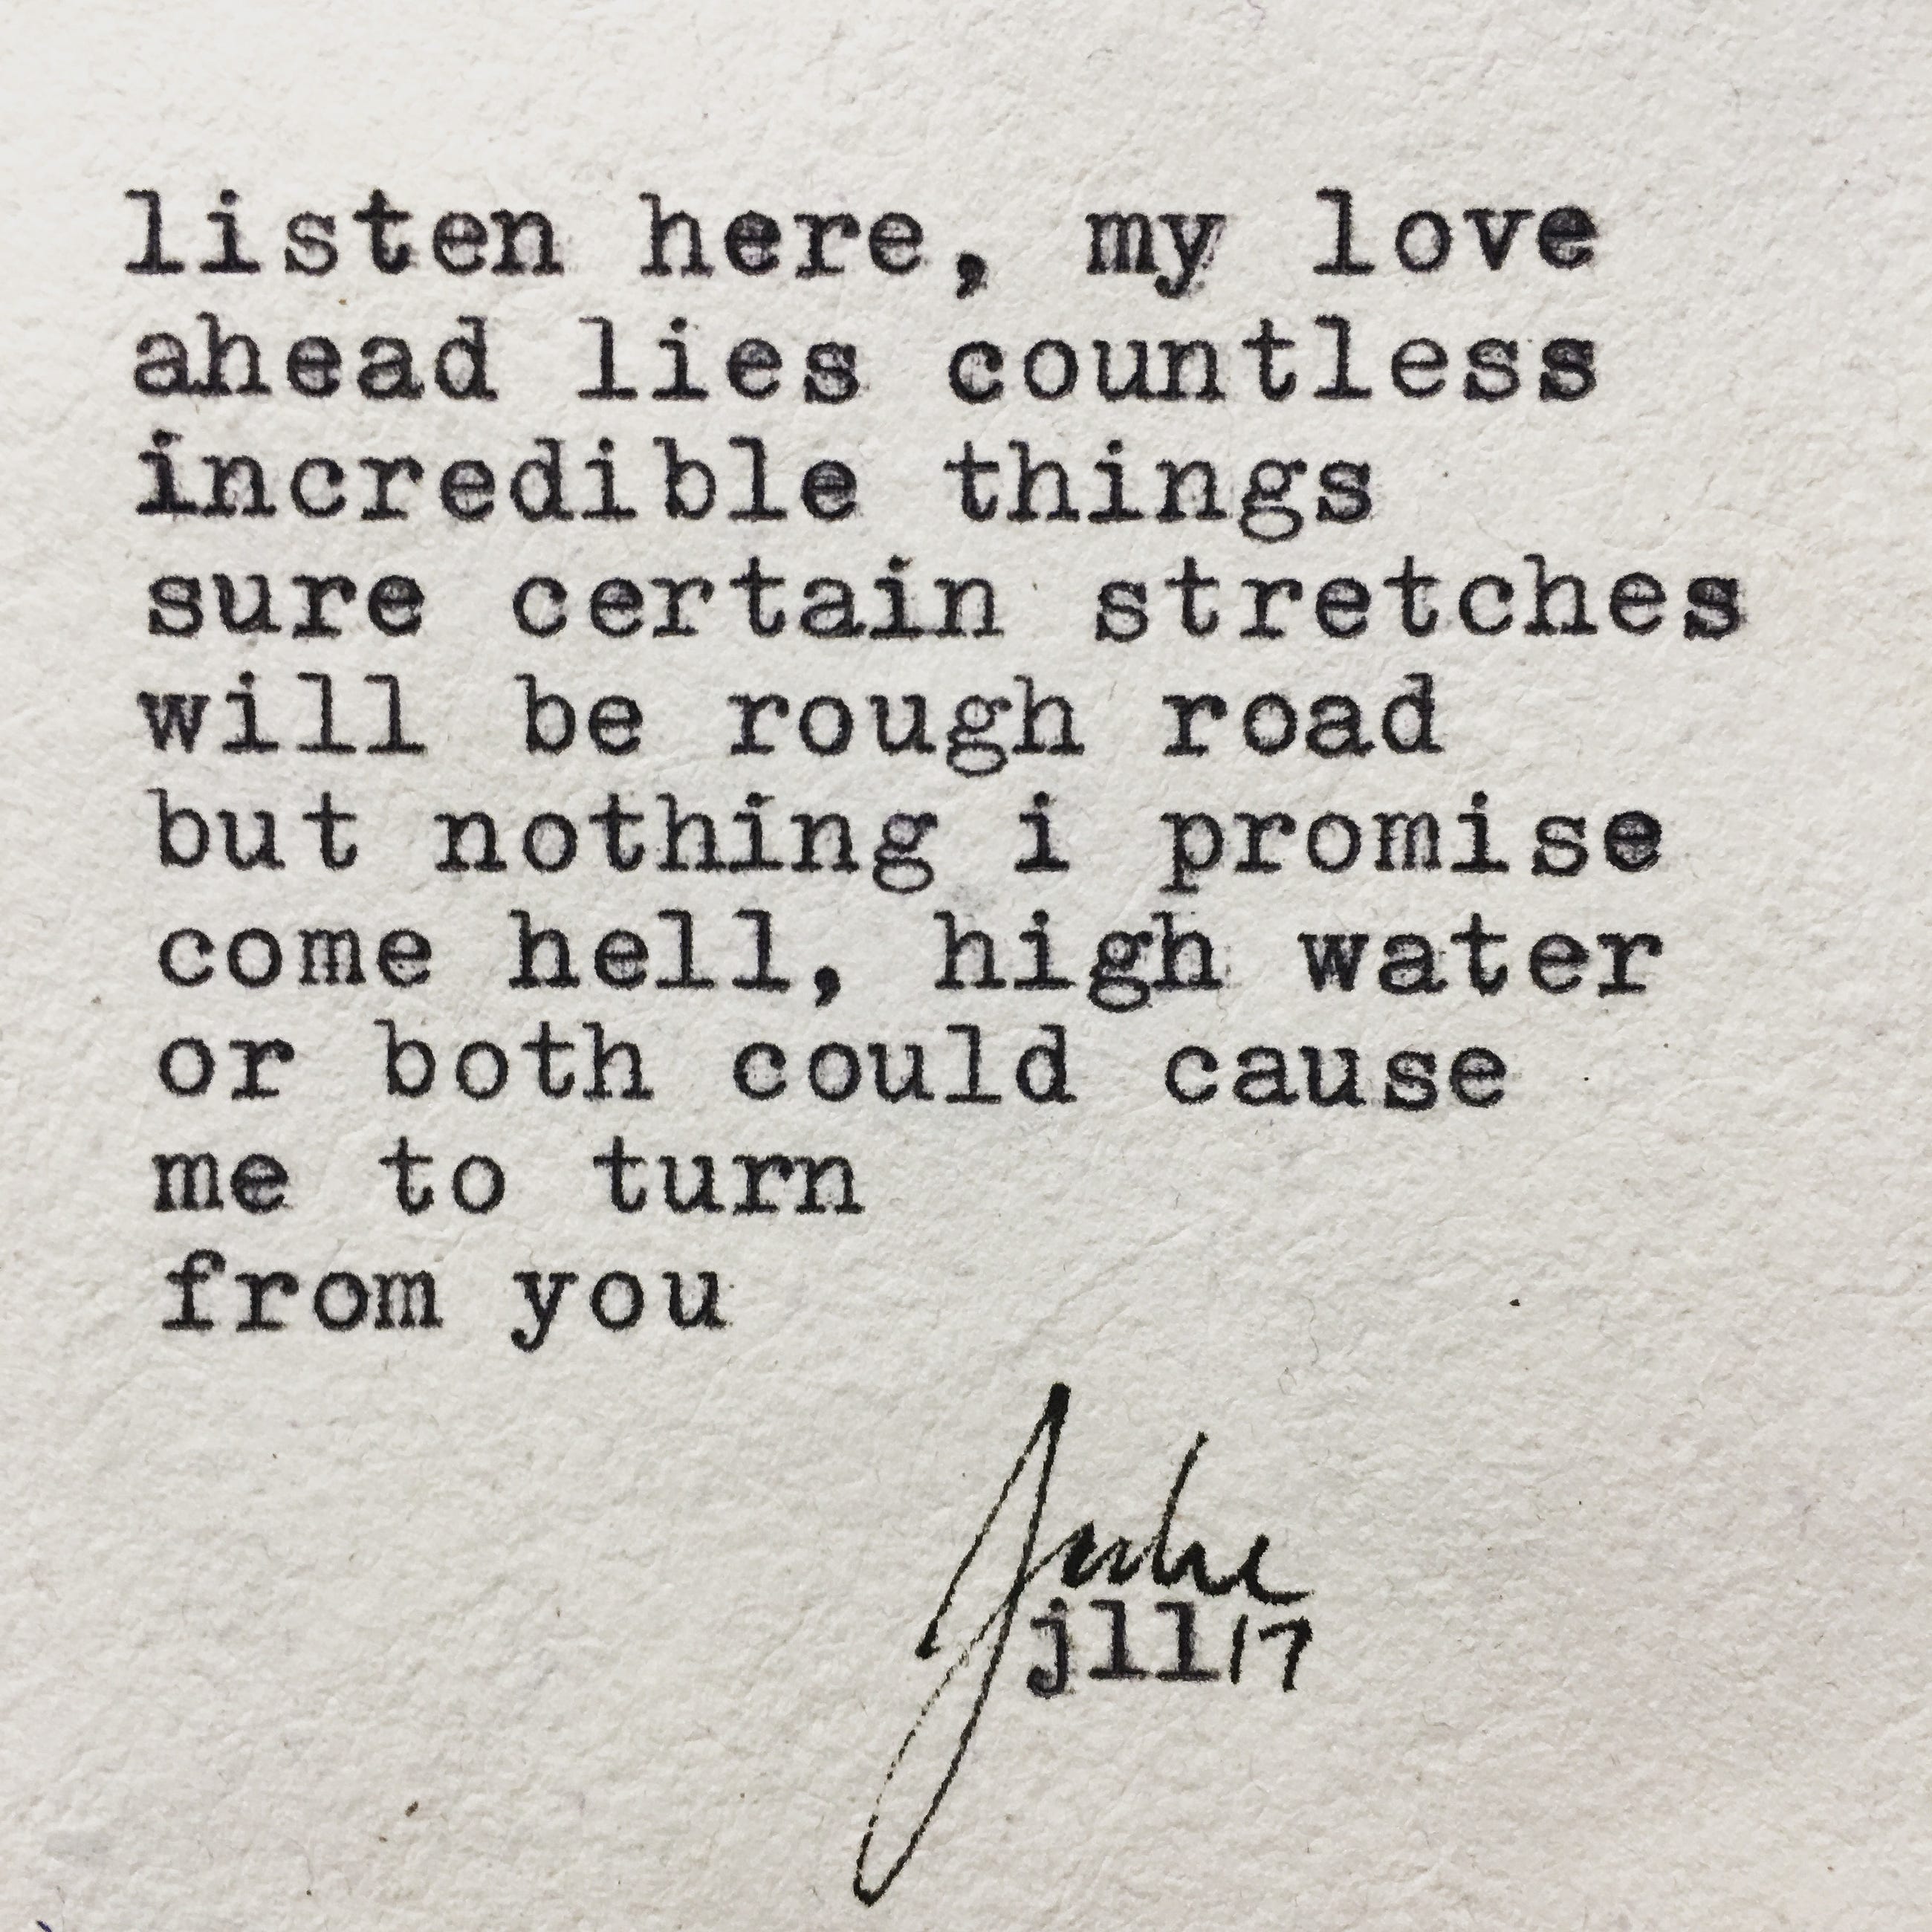 listen here, my love
ahead lies countless
incredible things
sure certain stretches
will be rough road
but nothing i promise
come hell, high water
or both could cause
me to turn
from you
jll17